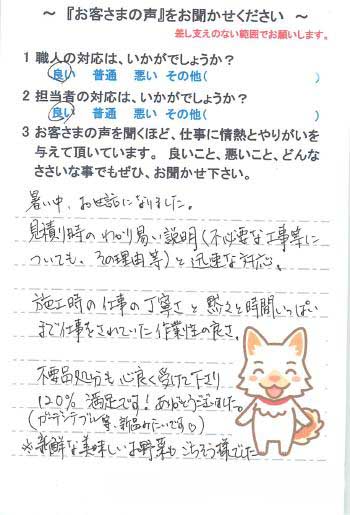 ～ 『お客さまの声』をお聞かせください ～
差し支えのない範囲でお願いします。
1 職人の対応は、いかがでしょうか？
良い 普通 悪い その他( )
2 担当者の対応は、いかがでしょうか？
良い 普通 悪い その他( )
3 お客さまの声を聞くほど、仕事に情熱とやりがいを
与えて頂いています。 良いこと、悪いこと、どんな
ささいな事でもぜひ、お聞かせ下さい。
暑い中、お世話になりました。
見積り時のわかり易い説明(不必要な工事等に
ついても、その理由等)と迅速な対応。
施工時の仕事の丁寧さと黙々と時間いっぱい
まで仕事をされていた作業性の良さ。
不要品処分も心良く受けて下り
120% 満足です！ありがとうございました。
(ガーデンテーブル等、新品みたいです♡)
※新鮮な美味しいお野菜もごちそう様でした